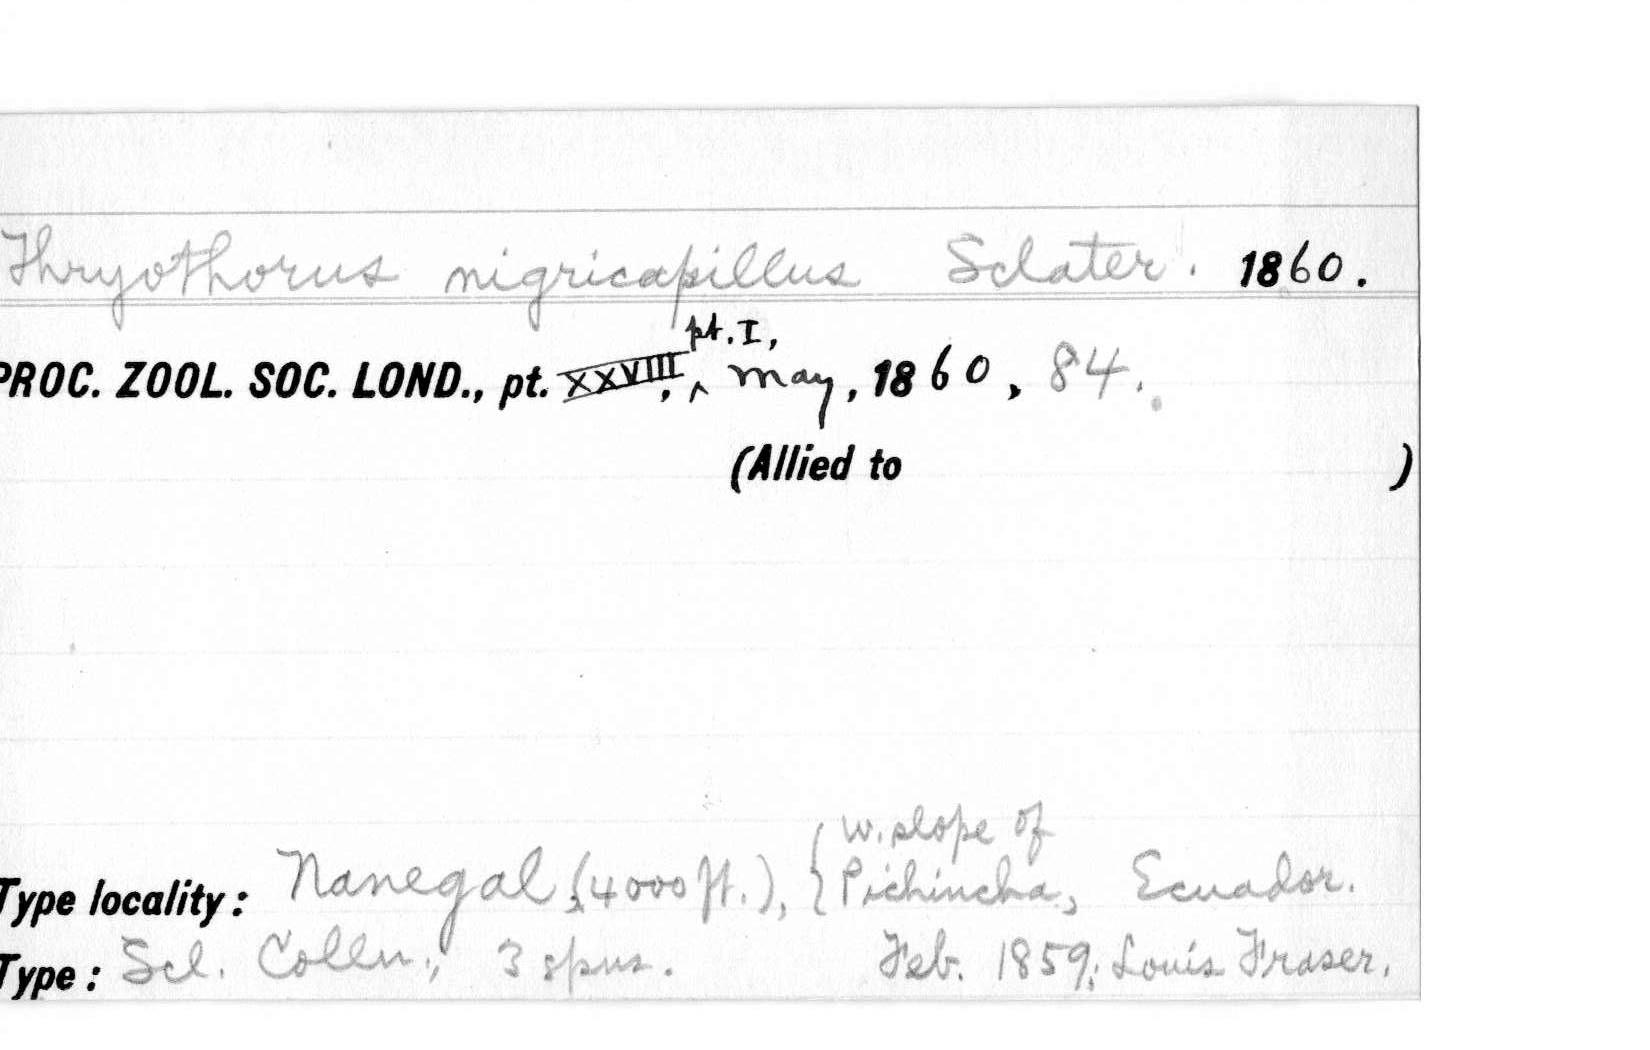 Thryothorus nigricapillus Sclater. 1860.
pt. I,
PROC. ZOOL. SOC. LOND., pt. XXVIII, ^ May, 1860, 84.
(Allied to )
w. slope of
Type locality: Nanegal (4000 ft.), { Pichincha, Ecuador.
Type: Scl. Colln.; 3 spns. Feb. 1859; Louis Fraser.